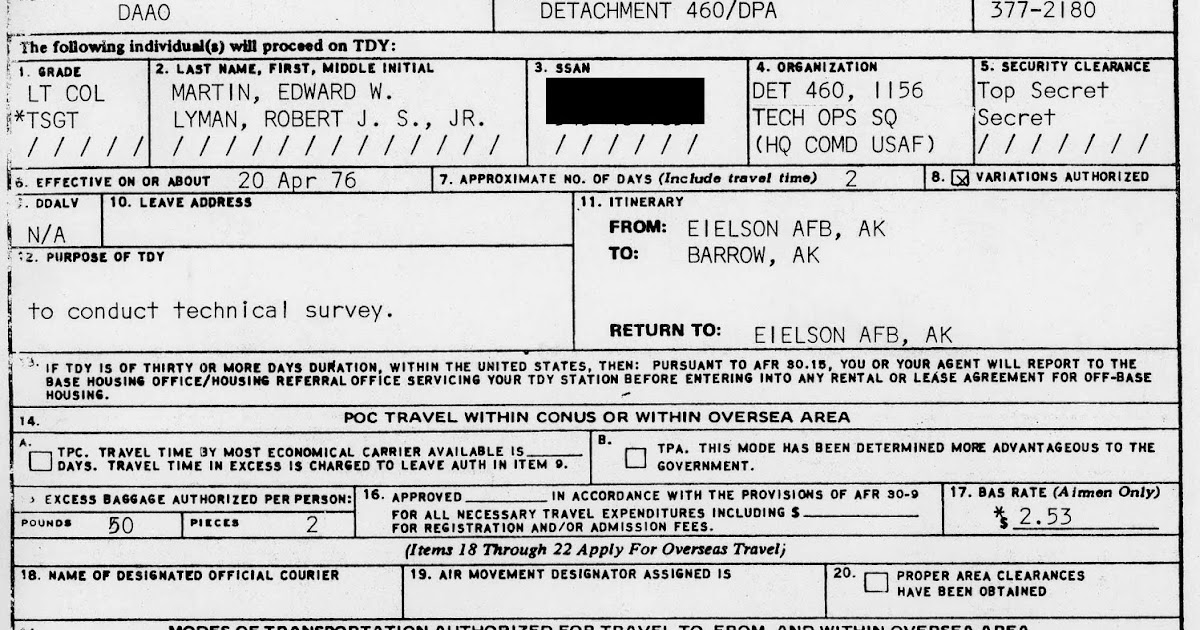 DAAO DETACHMENT 460/DPA 377-2180
The following individual(s) will proceed on TDY:
1. GRADE 2. LAST NAME, FIRST, MIDDLE INITIAL 3. SSAN 4. ORGANIZATION 5. SECURITY CLEARANCE
LT COL MARTIN, EDWARD W. DET 460, 1156 Top Secret
*TSGT LYMAN, ROBERT J. S., JR. TECH OPS SQ Secret
/ / / / / / / / / / / / / / / / / / / / / / / / / (HQ COMD USAF) / / / / / / /
6. EFFECTIVE ON OR ABOUT 20 Apr 76 7. APPROXIMATE NO. OF DAYS (Include travel time) 2 8. VARIATIONS AUTHORIZED
DDALV 10. LEAVE ADDRESS 11. ITINERARY
N/A
FROM: EIELSON AFB, AK
TO: BARROW, AK
2. PURPOSE OF TDY
to conduct technical survey.
RETURN TO: EIELSON AFB, AK
3. IF TDY IS OF THIRTY OR MORE DAYS DURATION, WITHIN THE UNITED STATES, THEN: PURSUANT TO AFR 30.15, YOU OR YOUR AGENT WILL REPORT TO THE
BASE HOUSING OFFICE/HOUSING REFERRAL OFFICE SERVICING YOUR TDY STATION BEFORE ENTERING INTO ANY RENTAL OR LEASE AGREEMENT FOR OFF-BASE
HOUSING.
14. POC TRAVEL WITHIN CONUS OR WITHIN OVERSEA AREA
A. TPC. TRAVEL TIME BY MOST ECONOMICAL CARRIER AVAILABLE IS
DAYS. TRAVEL TIME IN EXCESS IS CHARGED TO LEAVE AUTH IN ITEM 9.
B. TPA. THIS MODE HAS BEEN DETERMINED MORE ADVANTAGEOUS TO THE
GOVERNMENT.
EXCESS BAGGAGE AUTHORIZED PER PERSON:
POUNDS 50 PIECES 2
16. APPROVED IN ACCORDANCE WITH THE PROVISIONS OF AFR 30-9
FOR ALL NECESSARY TRAVEL EXPENDITURES INCLUDING $
FOR REGISTRATION AND/OR ADMISSION FEES.
17. BAS RATE (Airmen Only)
*$ 2.53
(Items 18 Through 22 Apply For Overseas Travel)
18. NAME OF DESIGNATED OFFICIAL COURIER 19. AIR MOVEMENT DESIGNATOR ASSIGNED IS 20. PROPER AREA CLEARANCES
HAVE BEEN OBTAINED
MODES OF TRANSPORTATION AUTHORIZED FOR TRAVEL TO, FROM, AND WITHIN OVERSEA AREA